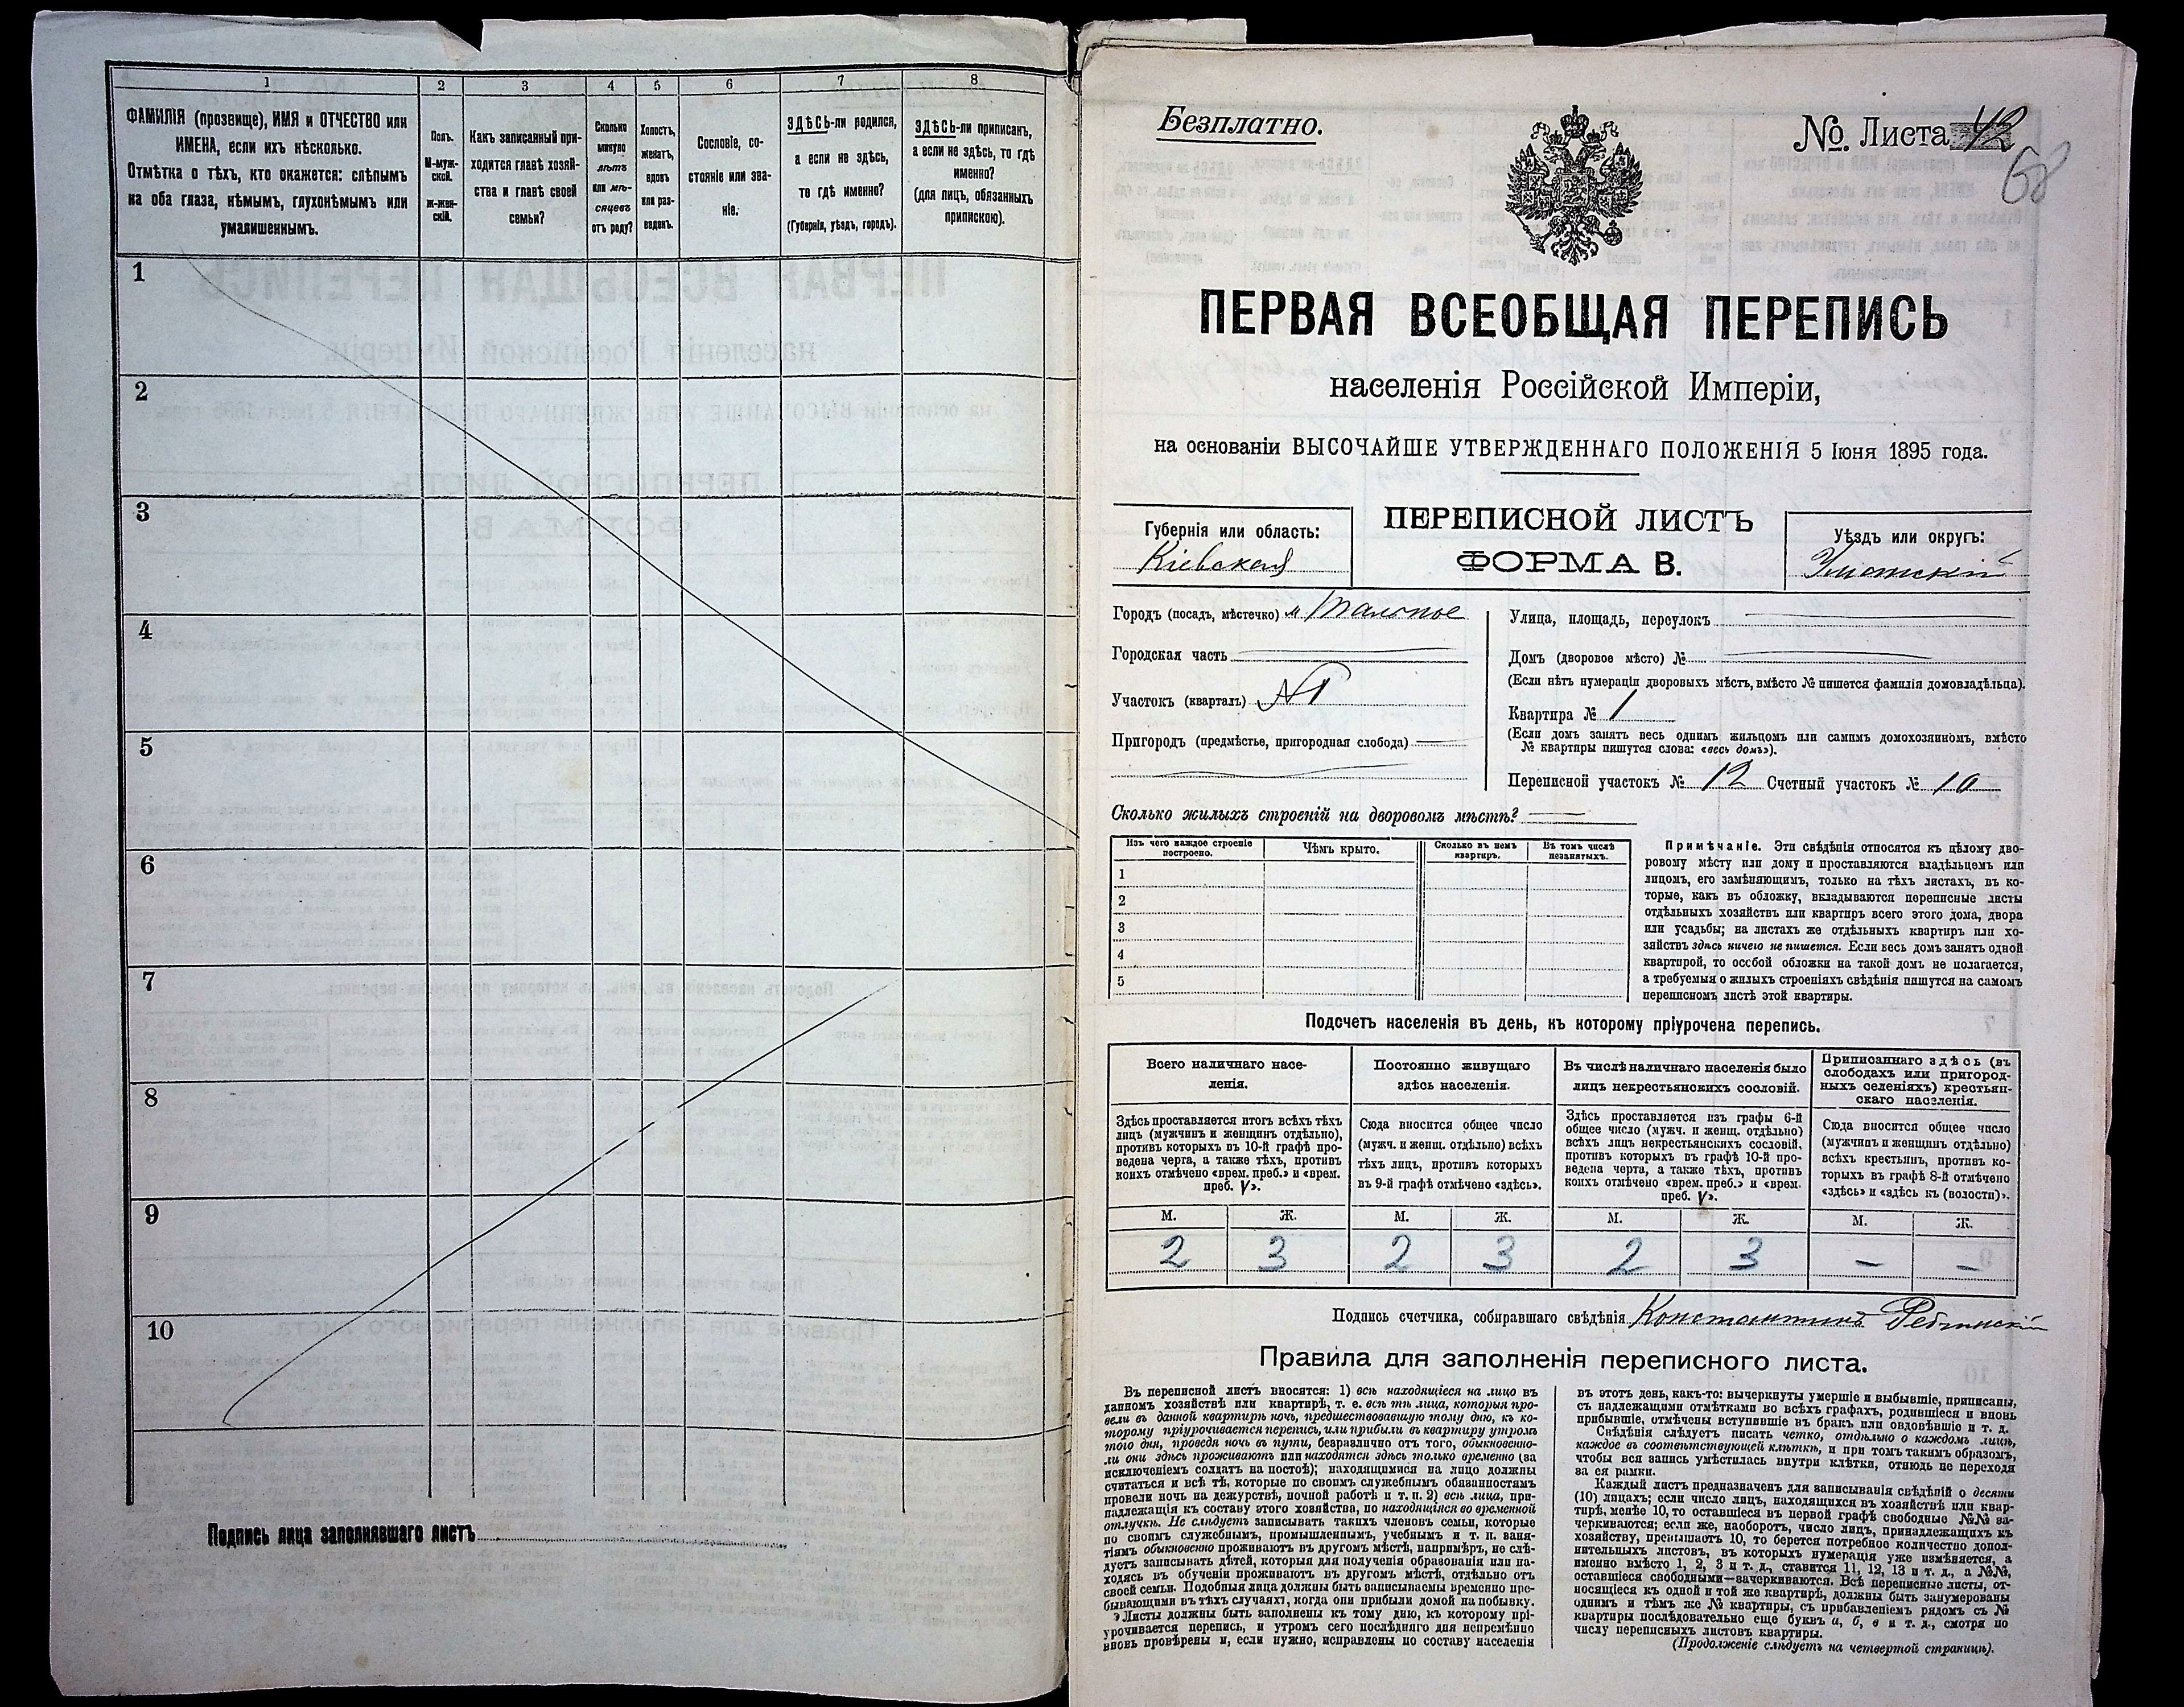 1
2
3
4
5
6
7
8
ФАМИЛІЯ (прозвище), ИМЯ и ОТЧЕСТВО или
ИМЕНА, если ихъ нѣсколько.
Отмѣтка о тѣхъ, кто окажется: слѣпымъ
на оба глаза, нѣмымъ, глухонѣмымъ или
умалишеннымъ.
Полъ.
М-муж-
ской.
ж-жен-
скій.
Какъ записанный при-
ходится главѣ хозяй-
ства и главѣ своей
семьи?
Сколько
минуло
лѣтъ
или мѣ-
сяцевъ
отъ роду?
Холостъ,
женатъ,
вдовъ
или раз-
веденъ.
Сословіе, со-
стояніе или зва-
ніе.
ЗДѢСЬ-ли родился,
а если не здѣсь,
то гдѣ именно?
(Губернія, уѣздъ, городъ).
ЗДѢСЬ-ли приписанъ,
а если не здѣсь, то гдѣ
именно?
(для лицъ, обязанныхъ
припискою).
1
2
3
4
5
6
7
8
9
10
Подпись лица заполнявшаго листъ
Безплатно.
№ Листа 42
68
ПЕРВАЯ ВСЕОБЩАЯ ПЕРЕПИСЬ
населенія Россійской Имперіи,
на основаніи ВЫСОЧАЙШЕ УТВЕРЖДЕННАГО ПОЛОЖЕНІЯ 5 Іюня 1895 года.
Губернія или область:
Кіевская
ПЕРЕПИСНОЙ ЛИСТЪ
ФОРМА В.
Уѣздъ или округъ:
Уманскій
Городъ (посадъ, мѣстечко) м. Тальное
Городская часть
Участокъ (кварталъ) №1
Пригородъ (предмѣстье, пригородная слобода)
Улица, площадь, переулокъ
Домъ (дворовое мѣсто) №
(Если нѣтъ нумераціи дворовыхъ мѣстъ, вмѣсто № пишется фамилія домовладѣльца).
Квартира № 1
(Если домъ занятъ весь однимъ жильцомъ или самимъ домохозяиномъ, вмѣсто
№ квартиры пишутся слова: «весь домъ»).
Переписной участокъ № 12 Счетный участокъ № 10
Сколько жилыхъ строеній на дворовомъ мѣстѣ?
Изъ чего каждое строеніе
построено.
Чѣмъ крыто.
Сколько въ немъ
квартиръ.
Въ томъ числѣ
незанятыхъ.
1
2
3
4
5
Примѣчаніе. Эти свѣдѣнія относятся къ цѣлому дво-
ровому мѣсту или дому и проставляются владѣльцемъ или
лицомъ, его замѣняющимъ, только на тѣхъ листахъ, въ ко-
торые, какъ въ обложку, вкладываются переписные листы
отдѣльныхъ хозяйствъ или квартиръ всего этого дома, двора
или усадьбы; на листахъ же отдѣльныхъ квартиръ или хо-
зяйствъ здѣсь ничего не пишется. Если весь домъ занятъ одной
квартирой, то особой обложки на такой домъ не полагается,
а требуемыя о жилыхъ строеніяхъ свѣдѣнія пишутся на самомъ
переписномъ листѣ этой квартиры.
Подсчетъ населенія въ день, къ которому пріурочена перепись.
Всего наличнаго насе-
ленія.
Постоянно живущаго
здѣсь населенія.
Въ числѣ наличнаго населенія было
лицъ некрестьянскихъ сословій.
Приписаннаго здѣсь (въ
слободахъ или пригород-
ныхъ селеніяхъ) крестьян-
скаго населенія.
Здѣсь проставляется итогъ всѣхъ тѣхъ
лицъ (мужчинъ и женщинъ отдѣльно),
противъ которыхъ въ 10-й графѣ про-
ведена черта, а также тѣхъ, противъ
коихъ отмѣчено «врем. преб.» и «врем.
преб. V».
Сюда вносится общее число
(мужч. и женщ. отдѣльно) всѣхъ
тѣхъ лицъ, противъ которыхъ
въ 9-й графѣ отмѣчено «здѣсь».
Здѣсь проставляется изъ графы 6-й
общее число (мужч. и женщ. отдѣльно)
всѣхъ лицъ некрестьянскихъ сословій,
противъ которыхъ въ графѣ 10-й про-
ведена черта, а также тѣхъ, противъ
коихъ отмѣчено «врем. преб.» и «врем.
преб. V».
Сюда вносится общее число
(мужчинъ и женщинъ отдѣльно)
всѣхъ крестьянъ, противъ ко-
торыхъ въ графѣ 8-й отмѣчено
«здѣсь» и «здѣсь къ (волости)».
М. Ж. М. Ж. М. Ж. М. Ж.
2 3 2 3 2 3 – –
Подпись счетчика, собиравшаго свѣдѣнія Константинъ
Правила для заполненія переписного листа.
Въ переписной листъ вносятся: 1) всѣ находящіеся на лицо въ
данномъ хозяйствѣ или квартирѣ, т. е. всѣ тѣ лица, которыя про-
вели въ данной квартирѣ ночь, предшествовавшую тому дню, къ ко-
торому пріурочивается перепись, или прибыли въ квартиру утромъ
того дня, проведя ночь въ пути, безразлично отъ того, обыкновенно-
ли они здѣсь проживаютъ или находятся здѣсь только временно (за
исключеніемъ солдатъ на постоѣ); находящимися на лицо должны
считаться и всѣ тѣ, которые по своимъ служебнымъ обязанностямъ
провели ночь на дежурствѣ, ночной работѣ и т. п. 2) всѣ лица, при-
надлежащія къ составу этого хозяйства, но находящіяся во временной
отлучкѣ. Не слѣдуетъ записывать такихъ членовъ семьи, которые
по своимъ служебнымъ, промышленнымъ, учебнымъ и т. п. заня-
тіямъ обыкновенно проживаютъ въ другомъ мѣстѣ, напримѣръ, не слѣ-
дуетъ записывать дѣтей, которыя для полученія образованія или на-
ходясь въ обученіи проживаютъ въ другомъ мѣстѣ, отдѣльно отъ
своей семьи. Подобныя лица должны быть записываемы временно пре-
бывающими въ тѣхъ случаяхъ, когда они прибыли домой на побывку.
Листы должны быть заполнены къ тому дню, къ которому прі-
урочивается перепись, и утромъ сего послѣдняго дня непремѣнно
вновь провѣрены и, если нужно, исправлены по составу населенія
въ этотъ день, какъ-то: вычеркнуты умершіе и выбывшіе, приписаны,
съ надлежащими отмѣтками во всѣхъ графахъ, родившіеся и вновь
прибывшіе, отмѣчены вступившіе въ бракъ или овдовѣвшіе и т. д.
Свѣдѣнія слѣдуетъ писать четко, отдѣльно о каждомъ лицѣ,
каждое въ соотвѣтствующей клѣткѣ, и при томъ такимъ образомъ,
чтобы вся запись умѣстилась внутри клѣтки, отнюдь не переходя
за ея рамки.
Каждый листъ предназначенъ для записыванія свѣдѣній о десяти
(10) лицахъ; если число лицъ, находящихся въ хозяйствѣ или квар-
тирѣ, менѣе 10, то оставшіеся въ первой графѣ свободные №№ за-
черкиваются; если же, наоборотъ, число лицъ, принадлежащихъ къ
хозяйству, превышаетъ 10, то берется потребное количество допол-
нительныхъ листовъ, въ которыхъ нумерація уже измѣняется, а
именно вмѣсто 1, 2, 3 и т. д., ставится 11, 12, 13 и т. д., а №№,
оставшіеся свободными—зачеркиваются. Всѣ переписные листы, от-
носящіеся къ одной и той же квартирѣ, должны быть занумерованы
однимъ и тѣмъ же № квартиры, съ прибавленіемъ рядомъ съ №
квартиры послѣдовательно еще буквъ а, б, в и т. д., смотря по
числу переписныхъ листовъ квартиры.
(Продолженіе слѣдуетъ на четвертой страницѣ).